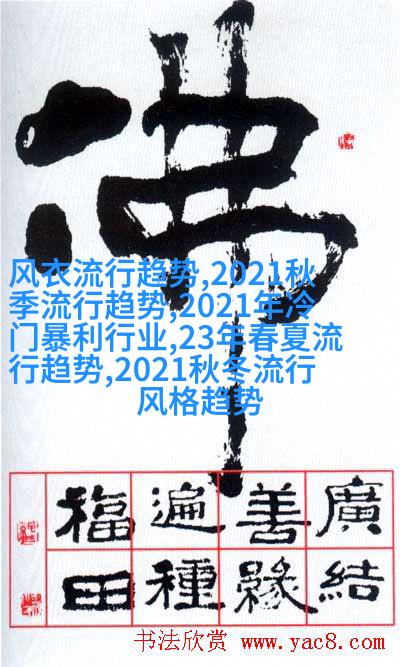 佛
风衣流行趋势,2021秋
季流行趋势,2021年冷
门暴利行业,23年春夏流
行趋势,2021秋冬流行
风格趋势
廣結
善緣
遍種
福田
书法欣赏 www.yac8.com